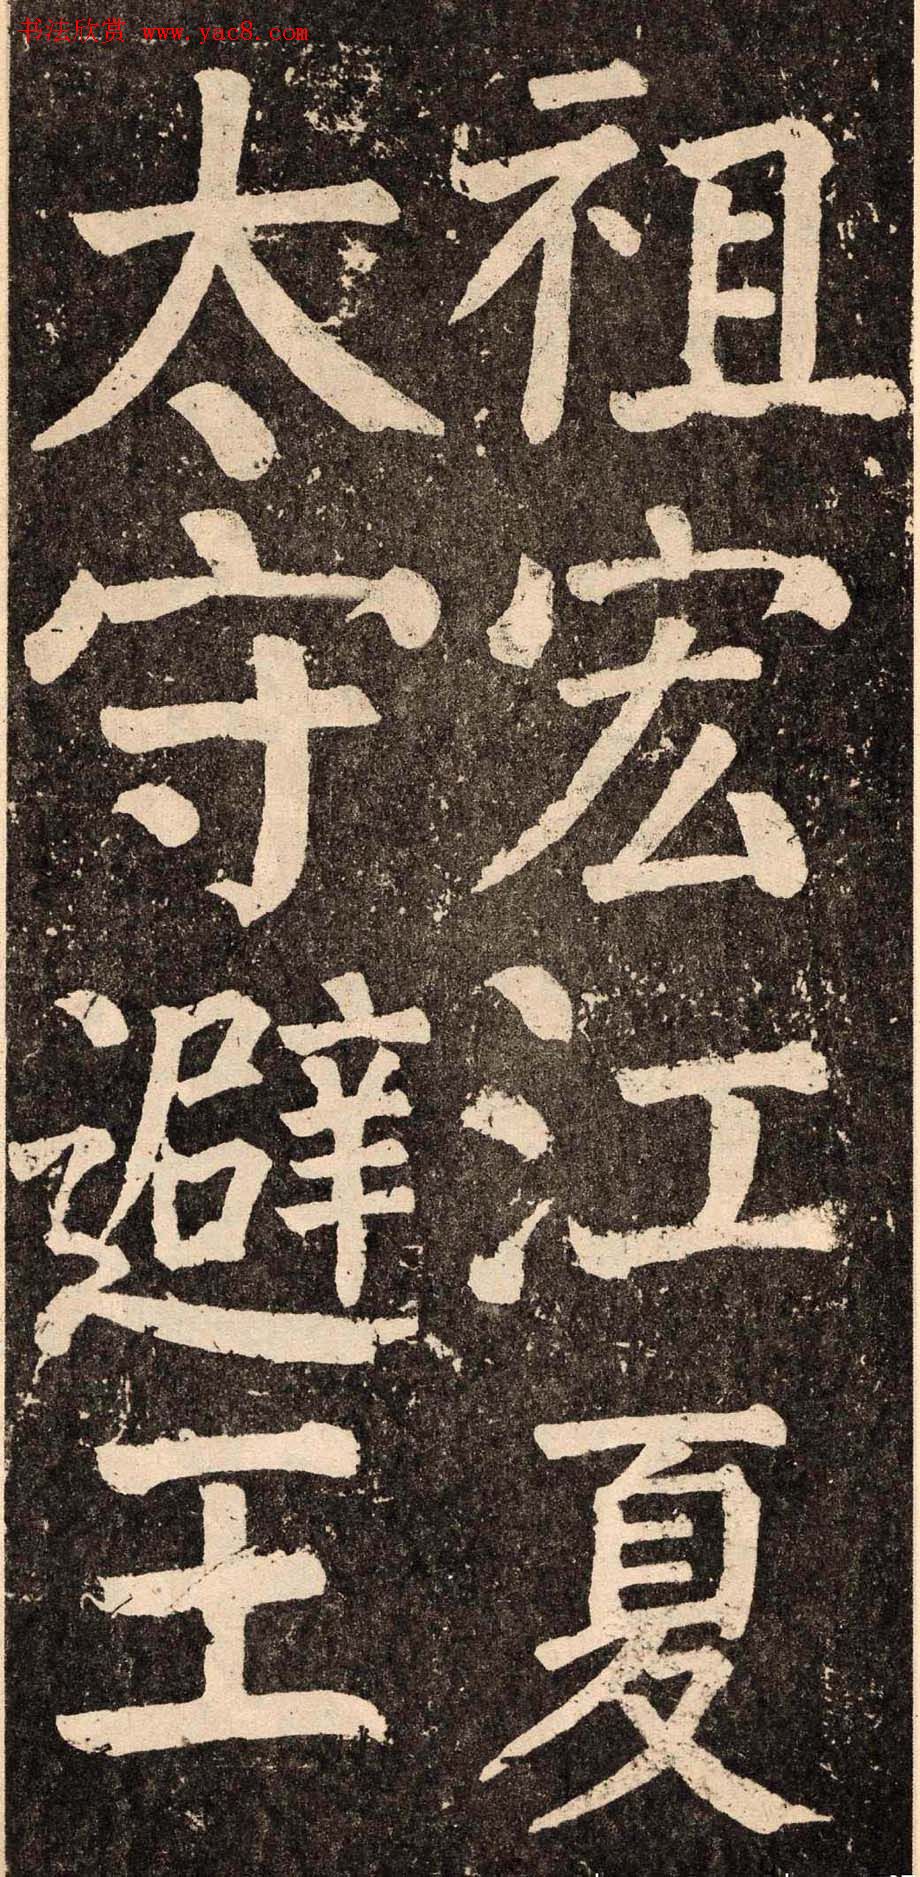 书法欣赏 www.yac8.com
祖宏江夏
太守避王